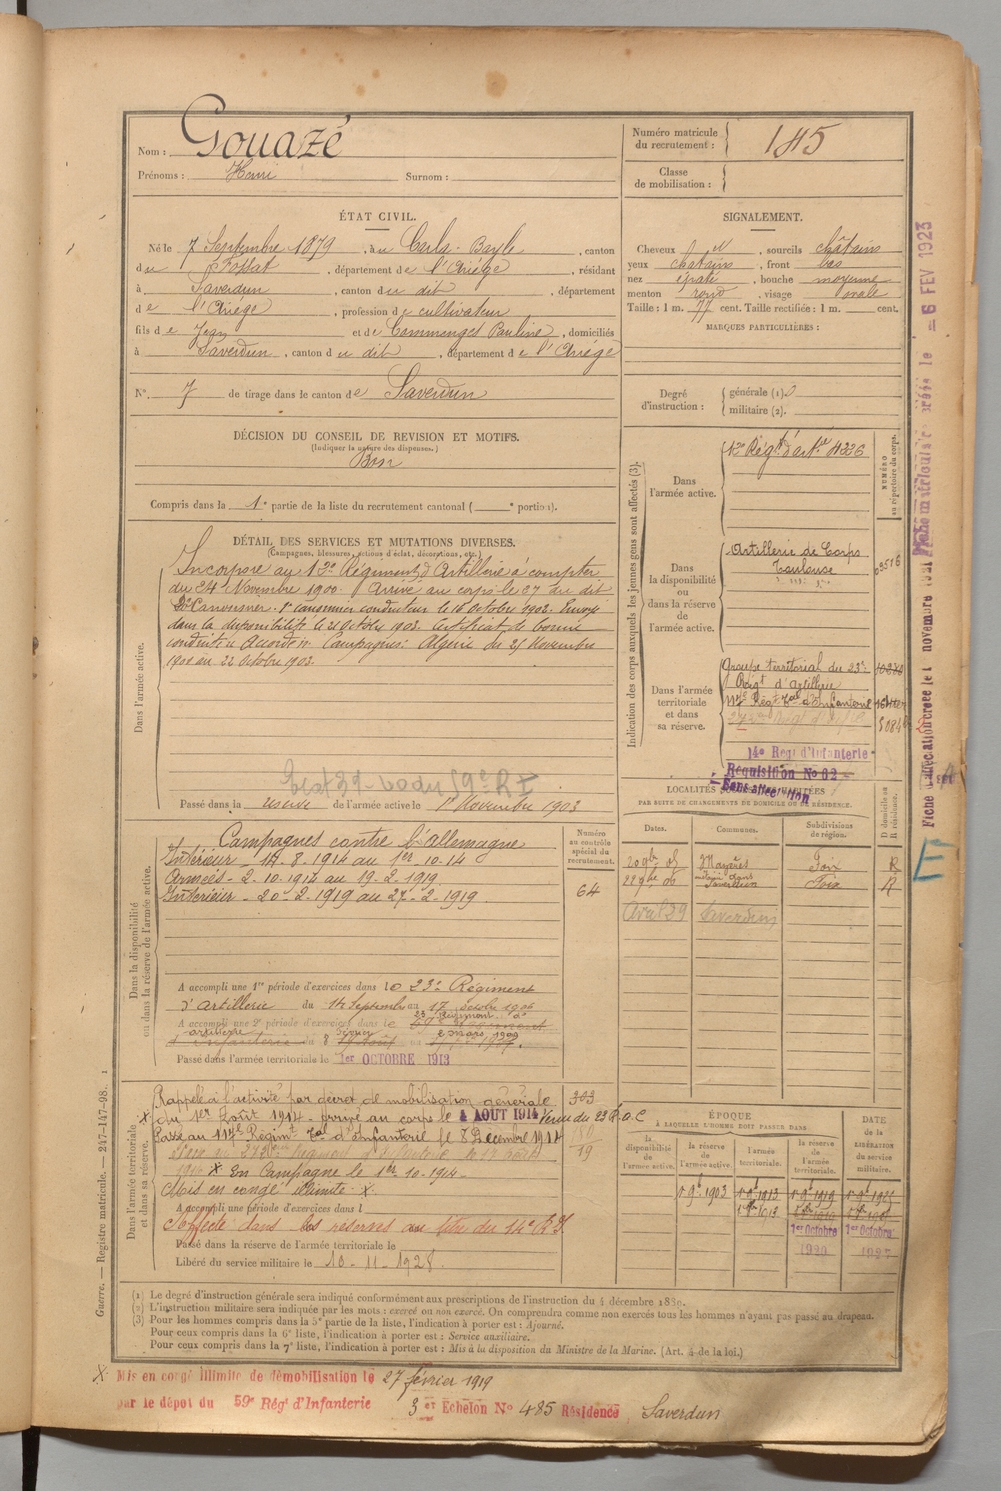 Nom : Gouazé
Prénoms : Henri Surnom :
Numéro matricule du recrutement : 145
Classe de mobilisation :
ÉTAT CIVIL.
Né le 7 Septembre 1879, à u Carla-Bayle, canton
du Fossat, département de l'Ariége, résidant
à Saverdun, canton du dit, département
de l'Ariége, profession de cultivateur
fils de Jean et de Commenges Pauline, domiciliés
à Saverdun, canton du dit, département de l'Ariége
N° 7 de tirage dans le canton de Saverdun
SIGNALEMENT.
Cheveux , sourcils châtains
yeux chatains, front bas
nez épaté, bouche moyenne
menton rond, visage ovale
Taille : 1 m. 77 cent. Taille rectifiée : 1 m. cent.
MARQUES PARTICULIÈRES :
Degré d'instruction : générale (1). 3
militaire (2).
DÉCISION DU CONSEIL DE REVISION ET MOTIFS.
(Indiquer la nature des dispenses.)
Bon
Compris dans la 1e partie de la liste du recrutement cantonal ( e portion).
DÉTAIL DES SERVICES ET MUTATIONS DIVERSES.
(Campagnes, blessures, actions d'éclat, décorations, etc.)
Dans l'armée active.
Incorporé au 12e Régiment d'Artillerie à compter
du 24 Novembre 1900. Arrivé au corps le 27 du dit
2e Canonnier. 1er canonnier conducteur le 16 Octobre 1902. Envoyé
dans la disponibilité le 21 Octobre 1903. Certificat de bonne
conduite Accordé. Campagnes: Algérie du 25 Novembre
1900 au 22 Octobre 1903.
Passé dans la réserve de l'armée active le 1er Novembre 1903
Indication des corps auxquels les jeunes gens sont affectés (3).
NUMÉRO au répertoire du corps.
Dans l'armée active.
12e Régt d'artie 4326
Dans la disponibilité ou dans la réserve de l'armée active.
Artillerie de Corps
Toulouse
03516
Dans l'armée territoriale et dans sa réserve.
Groupe territorial du 23e
Régt d'Artillerie
117e Régt Tal d'Infanterie
14e Régt d'Infanterie
Réquisition No 82
Sans affectation
LOCALITÉS SUCCESSIVES HABITÉES
PAR SUITE DE CHANGEMENTS DE DOMICILE OU DE RÉSIDENCE.
Dates. Communes. Subdivisions de région. D domicile ou R résidence.
Mazères Foix R
Saverdun Foix R
Avril 29 Saverdun
Dans la disponibilité ou dans la réserve de l'armée active.
Numéro au contrôle spécial du recrutement.
64
Campagnes contre l'allemagne
Intérieur - 14-8-1914 au 1er-10-14
Armées - 2-10-1914 au 19-2-1919
Intérieur - 20-2-1919 au 27-2-1919.
A accompli une 1re période d'exercices dans le 23e Régiment
d'Artillerie du 14 Septembre au 17 octobre 1906
A accompli une 2e période d'exercices dans le 23 Régiment d'
artillerie du 8 février au 2 mars 1909
Passé dans l'armée territoriale le 1er OCTOBRE 1913
Dans l'armée territoriale et dans sa réserve.
Rappelé à l'activité par décret de mobilisation générale
du 1er Août 1914 - arrivé au corps le 4 AOUT 1914 Venu du 23 R.a.C
Passé au 117e Régimt Tal d'Infanterie le 8 Décembre 1914
En Campagne le 1er 10-1914
Mis en congé illimité X.
A accompli une période d'exercices dans l
Affecté dans les réserves au titre du 14e R I
Passé dans la réserve de l'armée territoriale le
Libéré du service militaire le 10-11-1928
303
19
ÉPOQUE
À LAQUELLE L'HOMME DOIT PASSER DANS
la disponibilité de l'armée active. la réserve de l'armée active. l'armée territoriale. la réserve de l'armée territoriale. DATE de la LIBÉRATION du service militaire.
1er 9bre 1903 1er 9bre 1913 1er 9bre 1919 1er 9bre 1925
1er Octobre 1er Octobre
1920 1927
(1) Le degré d'instruction générale sera indiqué conformément aux prescriptions de l'instruction du 4 décembre 1889.
(2) L'instruction militaire sera indiquée par les mots : exercé ou non exercé. On comprendra comme non exercés tous les hommes n'ayant pas passé au drapeau.
(3) Pour les hommes compris dans la 5e partie de la liste, l'indication à porter est : Ajourné.
Pour ceux compris dans la 6e liste, l'indication à porter est : Service auxiliaire.
Pour ceux compris dans la 7e liste, l'indication à porter est : Mis à la disposition du Ministre de la Marine. (Art. 4 de la loi.)
X Mis en congé illimité de démobilisation le 27 février 1919
par le dépot du 59e Régt d'Infanterie 3 er Echelon No 485 Résidence Saverdun
Guerre. — Registre matricule. — 247-147-98.
6 FEV 1923